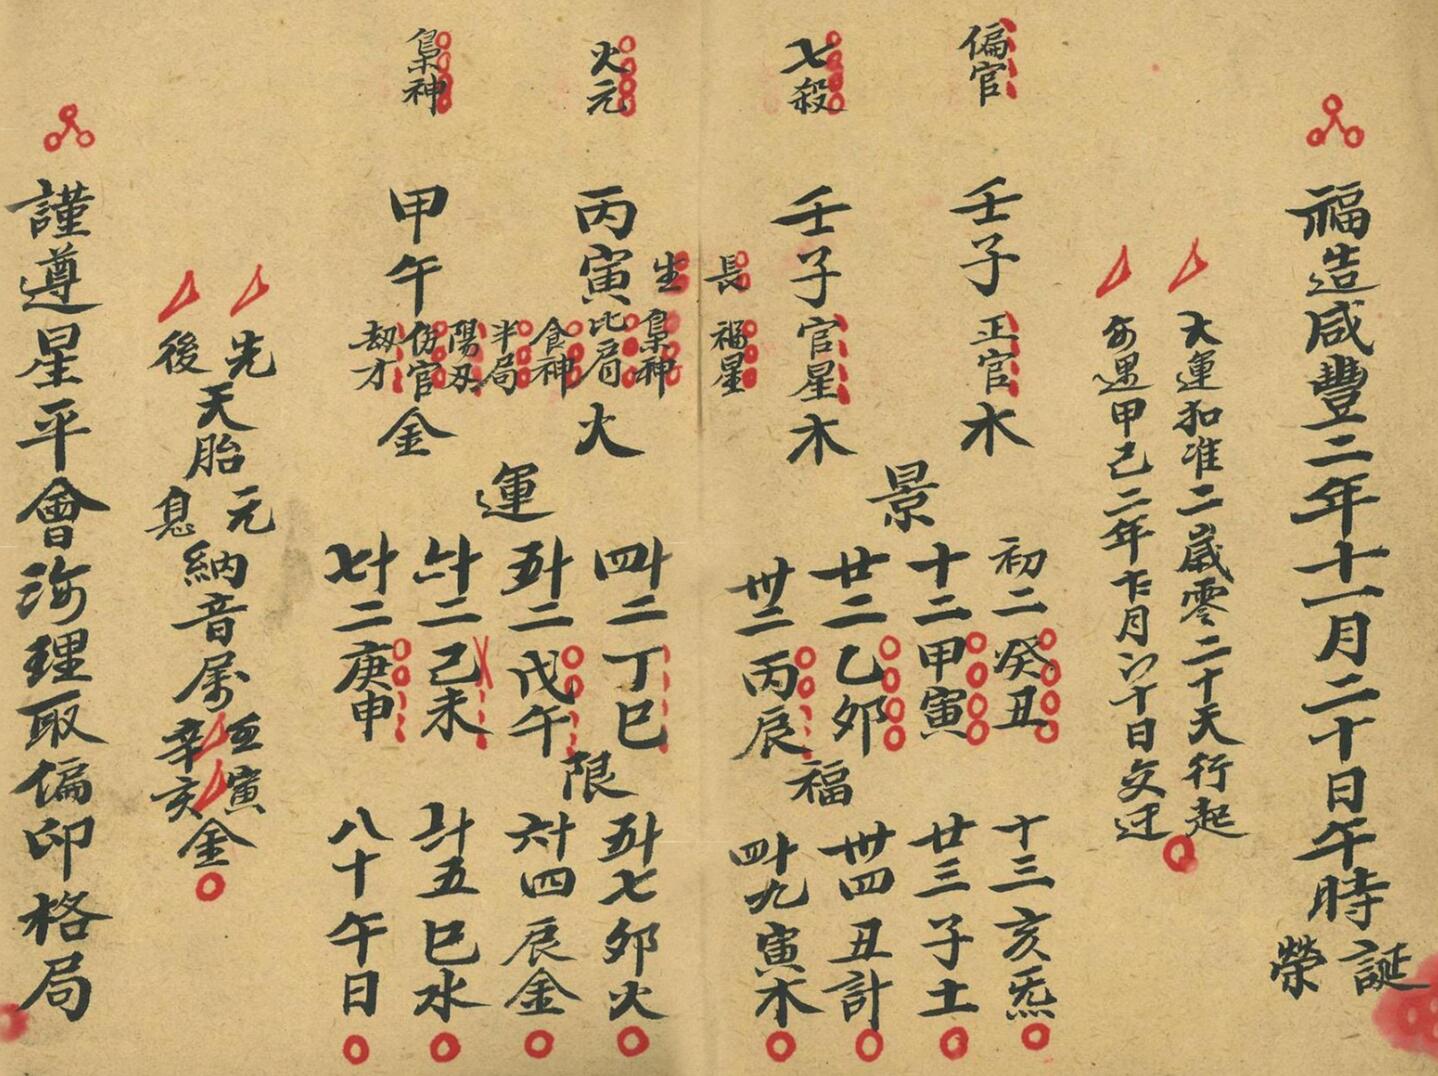 福造咸豐二年十一月二十日午時榮誕
大運扣准二歲零二十天行起
每逢甲己二年十日交迂
偏官
壬子
正官
木
七殺
壬子
官星
木
長生
福星
梟神
火元
丙寅
比肩
火
食神
半局
陽刃
梟神
甲午
傷官
劫才
金
景福
初二癸丑
十二甲寅
廿二乙卯
卅二丙辰
十三亥炁
廿三子土
卅四丑計
四十九寅木
運限
四十二丁巳
五十二戊午
六十二己未
七十二庚申
五十七卯火
六十四辰金
七十五巳水
八十午日
先後天胎元息納音屬壬寅辛亥金
謹遵星平會海理取偏印格局